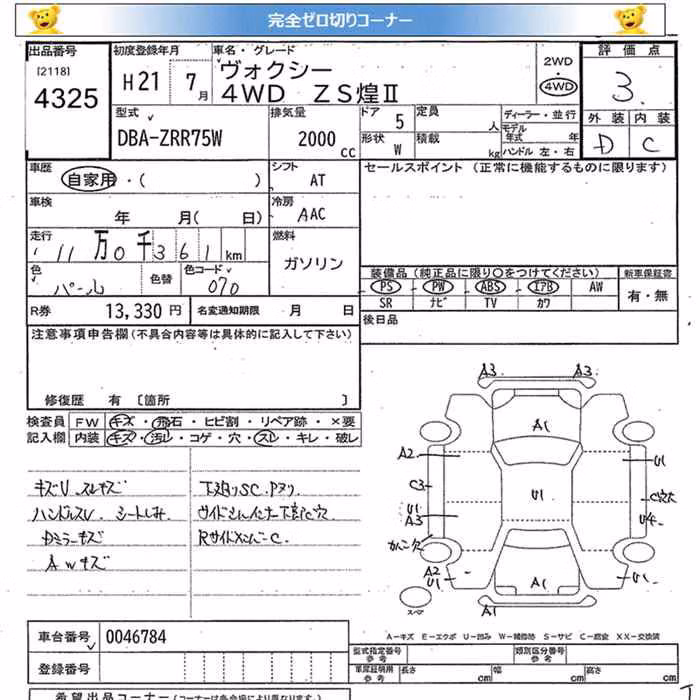 完全ゼロ切りコーナー
出品番号 初度登録年月 車名・グレード 評価点
[2118]
4325
H21 7月
ヴォクシー
4WD ZS煌Ⅱ
2WD
4WD
3
型式 排気量 ドア 5 定員 人 ディーラー・並行 外装 内装
DBA-ZRR75W 2000 CC 形状 W 積載 kg モデル年式 年 ハンドル 左・右 D C
車歴 シフト セールスポイント (正常に機能するものに限ります)
自家用・( ) AT
車検 冷房
年 月( 日) AAC
走行 燃料
11万0千361km ガソリン
色 色替 色コード 装備品(純正品に限り〇をつけてください) 新車保証書
パール 070 PS PW ABS エアB AW 有・無
SR ナビ TV カワ
R券 13,330円 名変通知期限 月 日 後日品
注意事項申告欄(不具合内容等は具体的に記入して下さい)
修復歴 有 [箇所 ]
検査員 FW キズ・飛石・ヒビ割・リペア跡・×要
記入欄 内装 キズ・汚レ・コゲ・穴・スレ・キレ・破レ
キズU スレキズ
ハンドルスレ シートしみ
Dミラーキズ
AWキズ
下廻りSC.Pヌリ
A3 A3
A1
A2 U1
C3 U1
U1
A3 U4
A2
U1 A1 U1
スペア A1
A-キズ E-エクボ U-凹み W-補修跡 S-サビ C-腐食 XX-交換済
車台番号 0046784
登録番号
型式指定番号 参考 類別区分番号 参考
車庫証明用 参考 長さ cm 幅 cm 高さ cm
希望出品コーナー